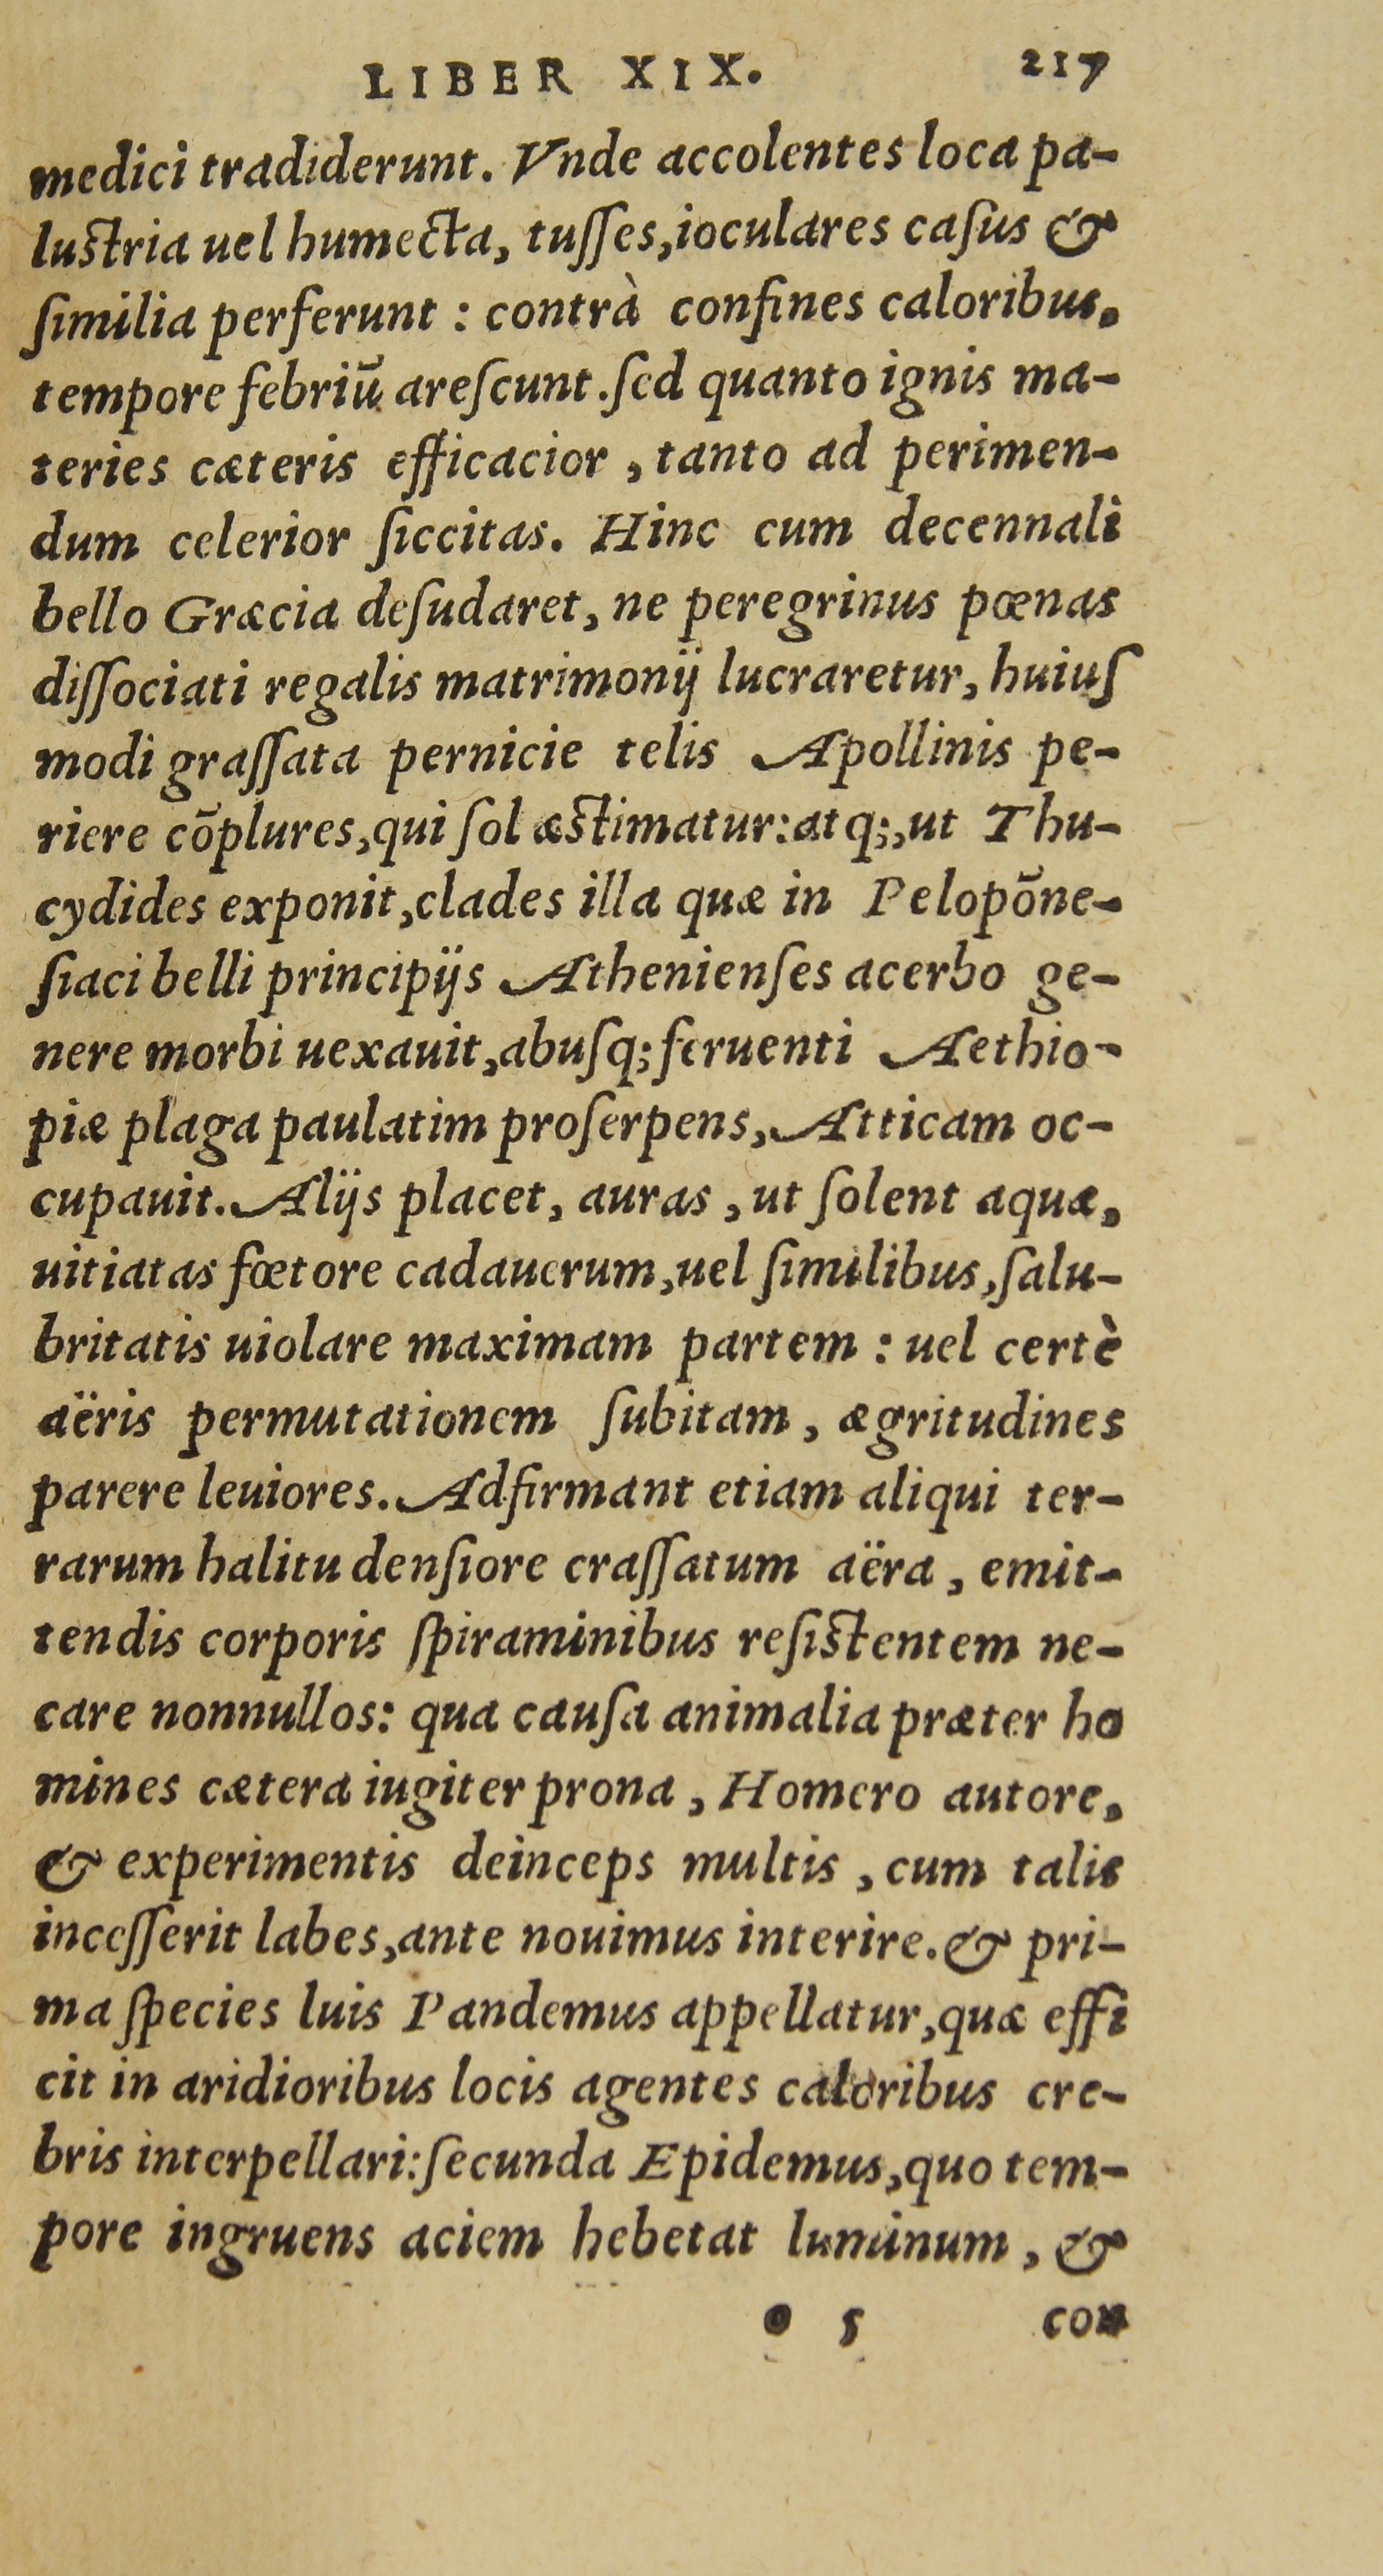 LIBER XIX. 217
medici tradiderunt. Vnde accolentes loca pa-
luſtria uel humecta, tuſſes,ioculares caſus &
ſimilia perferunt : contrà confines caloribus,
tempore febriū areſcunt.ſed quanto ignis ma-
teries cæteris efficacior , tanto ad perimen-
dum celerior ſiccitas. Hinc cum decennali
bello Græcia deſudaret, ne peregrinus pœnas
diſſociati regalis matrimonij lucraretur, huiuſ
modi graſſata pernicie telis Apollinis pe-
riere cōplures,qui ſol æſtimatur:atq;,ut Thu-
cydides exponit,clades illa quæ in Pelopōne-
ſiaci belli principijs Athenienſes acerbo ge-
nere morbi uexauit,abuſq; feruenti Aethio-
piæ plaga paulatim proſerpens,Atticam oc-
cupauit.Alijs placet, auras , ut ſolent aquæ,
uitiatas fœtore cadauerum,uel ſimilibus,ſalu-
britatis uiolare maximam partem : uel certè
aëris permutationem ſubitam , ægritudines
parere leuiores.Adfirmant etiam aliqui ter-
rarum halitu denſiore craſſatum aëra , emit-
tendis corporis ſpiraminibus reſiſtentem ne-
care nonnullos: qua cauſa animalia præter ho
mines cætera iugiter prona , Homero autore,
& experimentis deinceps multis , cum talis
inceſſerit labes,ante nouimus interire.& pri-
ma ſpecies luis Pandemus appellatur,quæ effi
cit in aridioribus locis agentes caloribus cre-
bris interpellari:ſecunda Epidemus,quo tem-
pore ingruens aciem hebetat luminum , &
o 5 con